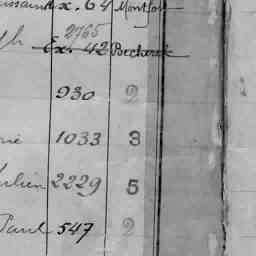 Ex. 64 Montfort
2765
Ex. 42 Becherel
930 2
1033 3
2229 5
Paul 547 2